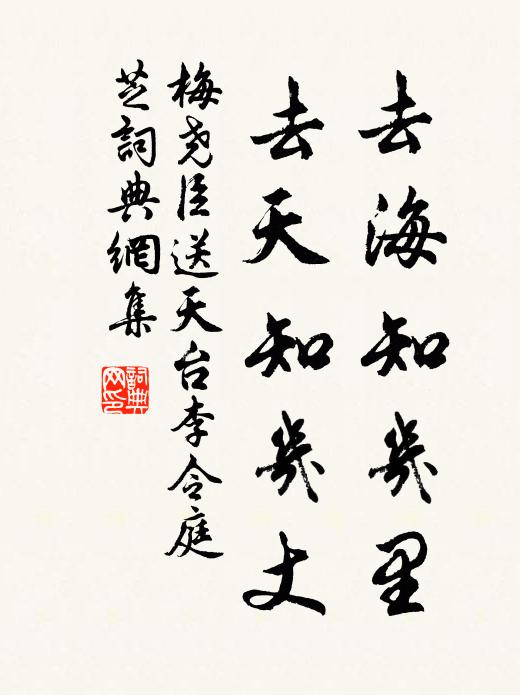 去海知幾里
去天知幾丈
梅堯臣送天台李令庭
芝詞典網集
詞典網印